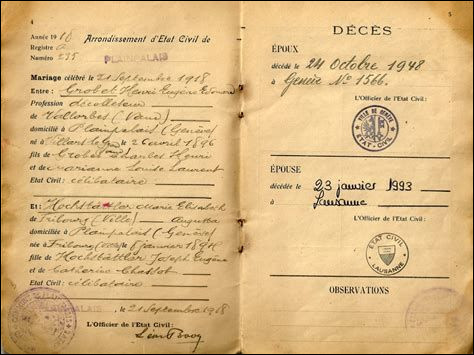 4
Année 1918 Arrondissement d'Etat Civil de
Registre A
Numéro 235 PLAINPALAIS
Mariage célébré le 21 Septembre 1918
Entre : Grobet Henri Eugène Edmond
Profession décolleteur
de Vallorbes (Vaud)
domicilié à Plainpalais (Genève)
né à Villars le le 2 avril 1896
fils de Grobet Charles Henri
et de Marianne Louise Laurent
Etat Civil : célibataire
Et : Hochstättler Marie Elisabeth
de Fribourg (Ville) Augusta
domiciliée à Plainpalais (Genève)
née à Fribourg le 8 janvier
fille de Hochstättler Joseph Eugène
et de Catherine Chassot
Etat Civil : célibataire
, le 21 Septembre 1918
L'Officier de l'Etat Civil :
PLAINPALAIS
5
DÉCÈS
ÉPOUX
décédé le 24 Octobre 1948
à Genève No 1566.
L'Officier de l'Etat Civil :
VILLE DE GENÈVE
ETAT-CIVIL
ÉPOUSE
décédée le 23 janvier 1993
à Lausanne
L'Officier de l'Etat Civil :
ETAT CIVIL
LAUSANNE
OBSERVATIONS